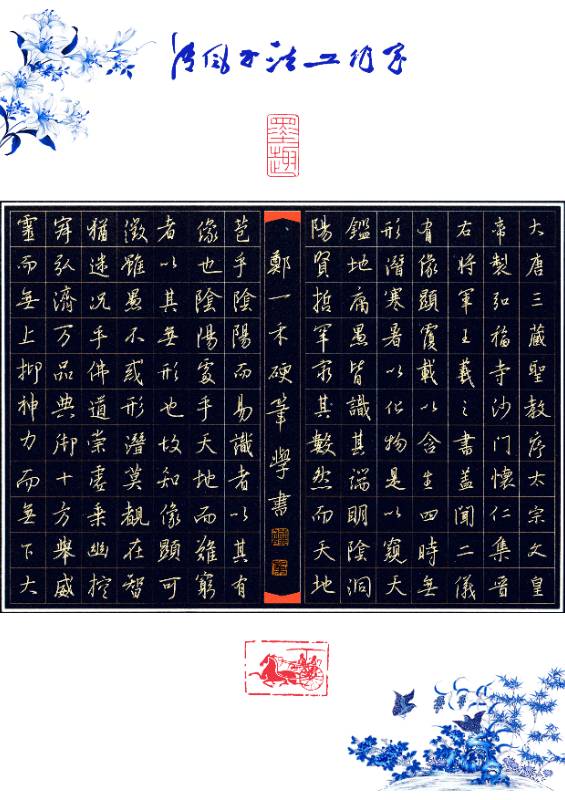 清风书法工作室
墨趣
大唐三藏聖教序太宗文皇
帝製弘福寺沙門懷仁集晉
右將軍王羲之書蓋聞二儀
有像顯覆載以含生四時無
形潛寒暑以化物是以窺天
鑑地庸愚皆識其端明陰洞
陽賢哲罕窮其數然而天地
鄭一木硬筆學書
苞乎陰陽而易識者以其有
像也陰陽處乎天地而難窮
者以其無形也故知像顯可
徵雖愚不惑形潛莫覩在智
猶迷況乎佛道崇虛乘幽控
寂弘濟万品典御十方舉威
靈而無上抑神力而無下大